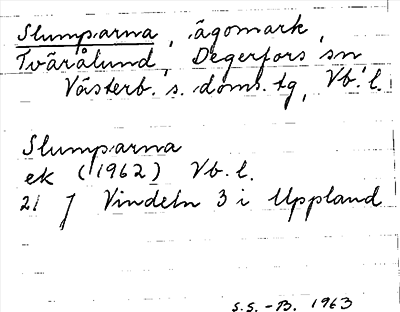 Slumparna, ägomark,
Tväråлund, Degerfors sn
Västerb. s. doms. tg, Vb. l.
Slumparna
ek (1962) Vb. l.
21 J Vindeln 3 i Uppland
S.S. -B. 1963